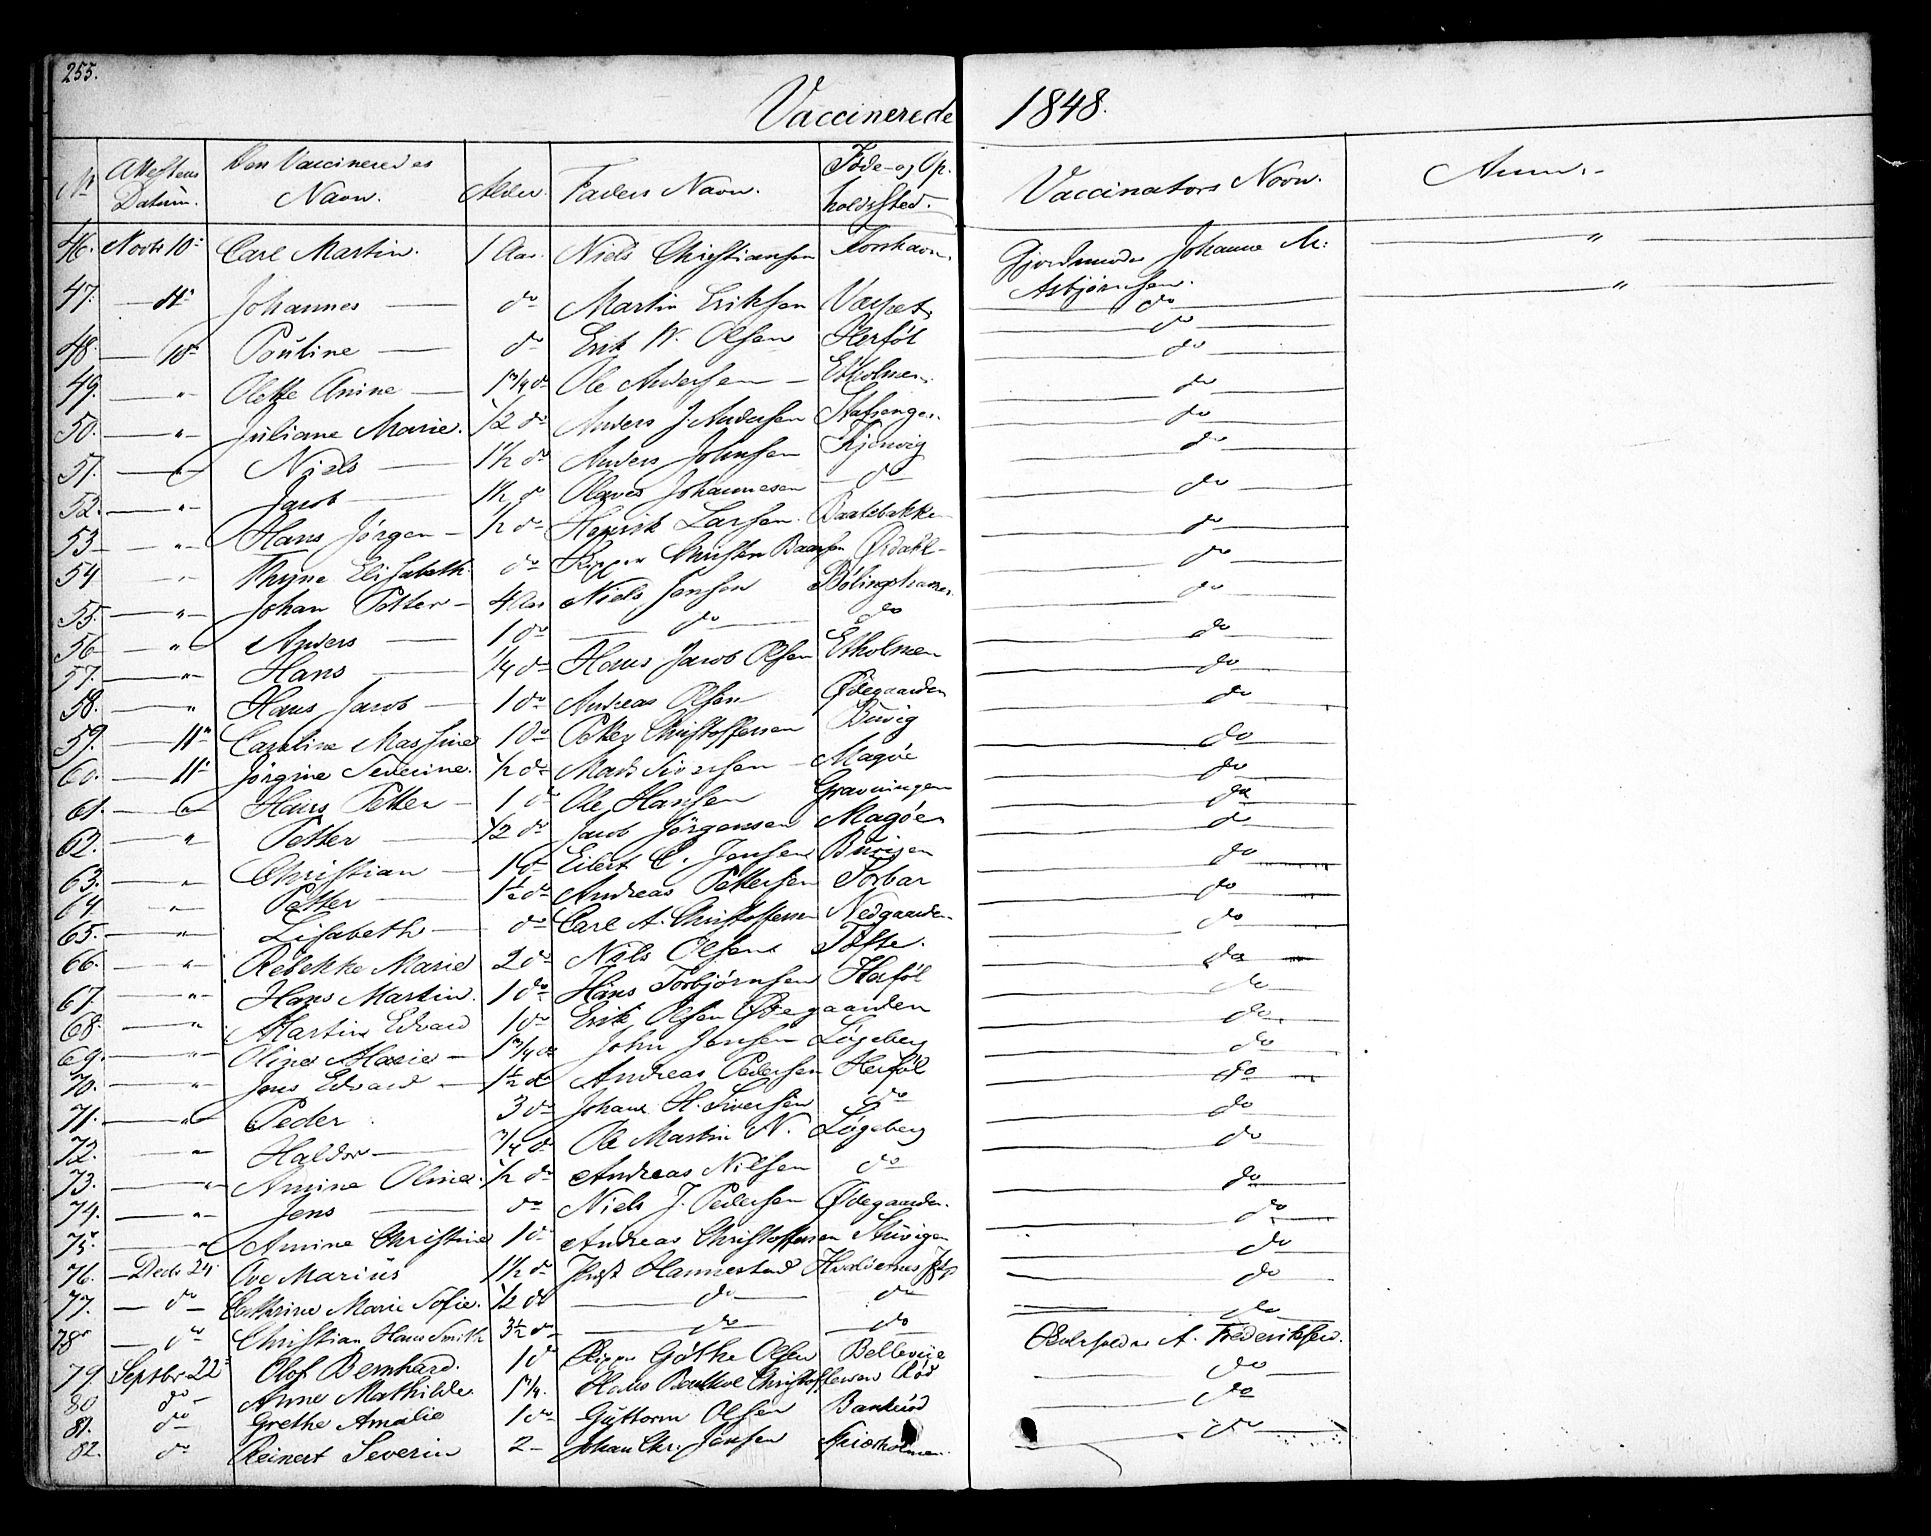 255.
Vaccinerede 1848.
Nr Attestens Datum. Den Vaccineredes Navn. Alder. Faders Navn. Føde- og Opholdssted. Vaccinators Navn. Anm.
46. Novbr 10de Carl Martin. 1 Aar. Niels Christiansen Gjordemoder Johanne M: Asbjørnsen. "
47. — 11 Johannes — do Martin Eriksen do "
48. — 10 Pouline — do Erik N. Olsen Herføl do
49. — " Olette Anine — 1 3/4 do Ole Andersen — do
50. — " Juliane Marie. 1/2 do Anders J. Andersen do
51. — " Niels — 1 1/2 do Anders Johnsen Kjervig do
52. — " Jacob — 1 1/2 do Olaves Johannesen do do
53 — " Hans Jørgen — 1/2 do Henrik Larsen. do
54 — " Elisabeth do Skipper Christen do
55. — " Johan Petter — 4 Aar Niels Jensen do
56 — " Anders — 1 do do do do
57. — " Hans — 1/4 do Hans Jacob Olsen do
58. — " Hans Jacob — 1 do Andreas Olsen Ødegaarden do
59. — 11 Caroline 1 do Petter Christoffersen Buvig do
60. — 11 Jørgine Severine. 1/2 do Mads Siversen — Magøe do
61. — " Hans Petter — 1 do Ole Hansen Gravningen do
62. — " Petter — 1/2 do Jacob Jørgensen Magøen do
63. — " Christian — 1 do Eilert C. Jensen Buvigen do
64 — " Petter — 1 1/2 do Andreas Pettersen do
65. — " Lisabeth — do Carl A. Christoffersen Nedgaarden do
66. — " Rebekke Marie 2 do Niels Olsen Tofte. do
67. — " Hans Martin. 1 do Hans Torbjørnsen Herføl do
68. — " Martin Edvard 1 do Erik Olsen Ødegaarden do.
69. — " Oline Marie — 1 3/4 do John Jensen Løgeberg do
70. — " Jens Edvard — 1 1/2 do Andreas Pedersen Herføl do
71. — " Peder 3 do Johan H. Siversen do do
72. — " Haldor — 3/4 do Ole Martin N. Løgeberg do
73. — " Amine Oline. 1/2 do Andreas Nilsen do do
74. — " Jens — do Niels J. Pedersen Ødegaarden. do
75. — " Amine Christine 1 do Andreas Christoffersen Stuvigen do
76. — Decbr 24 Ove Marius 1 1/2 do Hannestad do
77. — do — Cathrine Marie Sofie. 1/2 do do do do
78 — do Christian Hans Smith 3 1/2 do do do A. Frederiksen.
79 Septbr 22 Olof Bernhard. 1 do Skipper Gøthe Olsen Bellevue do
80 do — Anne Mathilde 1 3/4. Hans Christoffersen Rød do
81. do Grethe Amalie 1 do Guttorm Olsen do
82. do Reinert Severin 2 — Johan Chr. Jensen